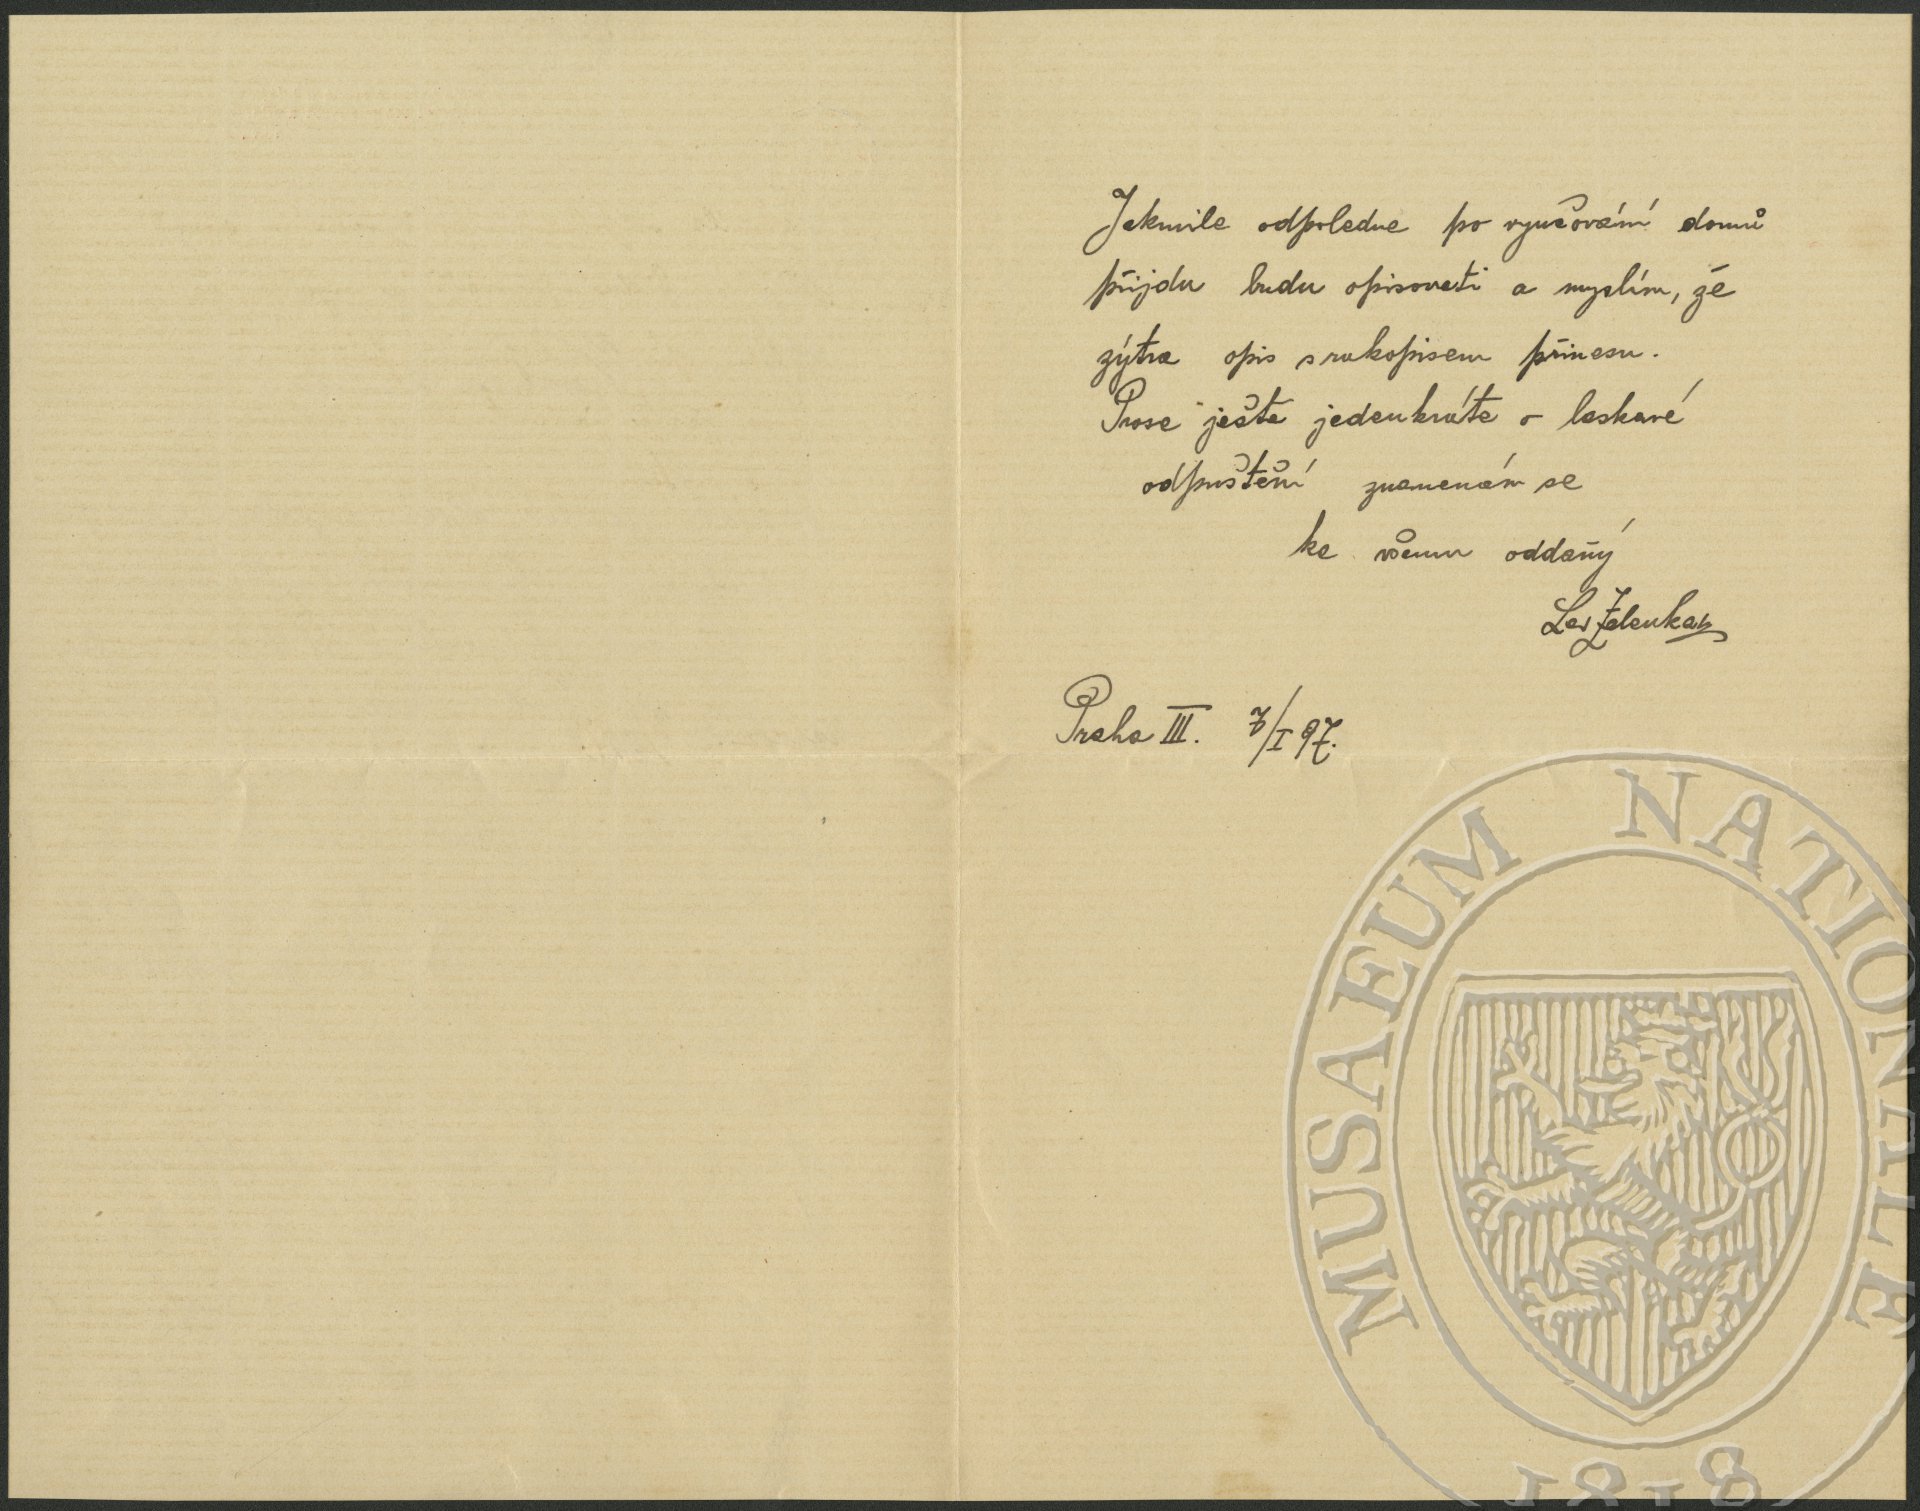 Jakmile odpoledne po vyučování domů
přijdu budu opisovati a myslím, že
zýtra opis s rukopisem přinesu.
Prose ještě jedenkráte o laskavé
odpuštění znamenám se
ke všemu oddaný
Lev Zelenka
Praha III. 7/I 97.
MUSAEUM NATIONALE
1818